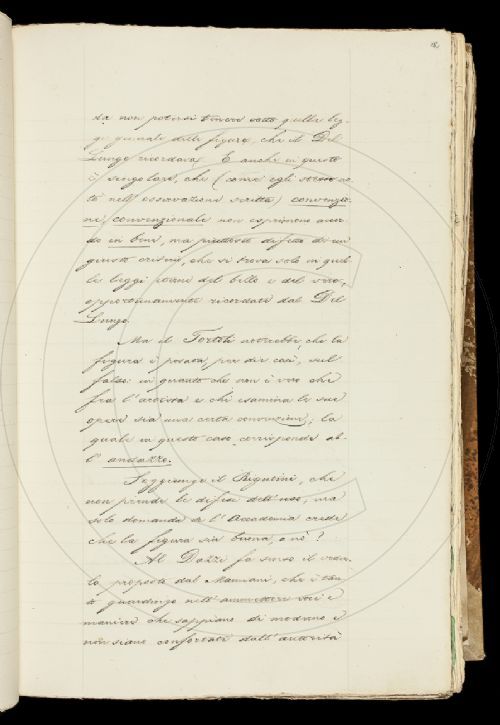 da non potersi tenere sotto quelle leg-
gi generali delle figure, che il Del
Lungo ricordava. E anche in questo
è singolare, che (come egli stesso no-
tò nell'osservazione scritta) convenzio-
ne, convenzionale non esprimono accor-
do in bene, ma piuttosto difetto di un
giusto criterio, che si trova solo in quel-
le leggi eterne del bello e del vero,
opportunamente ricordate dal Del
Lungo.
Ma il Tortoli noterebbe, che la
figura è posata, per dir così, sul
falso: in quanto che non è vero che
fra l'artista e chi esamina le sue
opere sia una certa convenzione; la
quale in questo caso corrisponde al-
l'andazzo.
Soggiunge il Rigutini, che
non prende le difese dell'uso, ma
solo domanda se l'Accademia crede
che la figura sia buona, o no?
Al Dazzi fa senso il veder-
la proposta dal Mamiani, che è tan-
to guardingo nell'ammettere voci e
maniere che sappiano di moderno e
non siano confortate dall'autorità